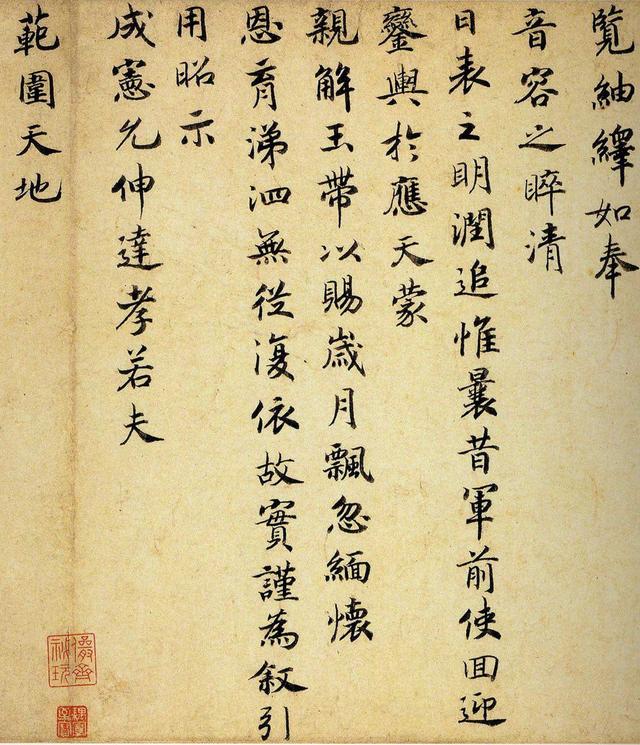 覧紬繹如奉
音容之睟清
日表之明潤追惟曩昔軍前使回迎
鑾輿於應天蒙
親解玉帶以賜歲月飄忽緬懷
恩育涕泗無從復依故實謹為敘引
用昭示
成憲允伸達孝若夫
範圍天地